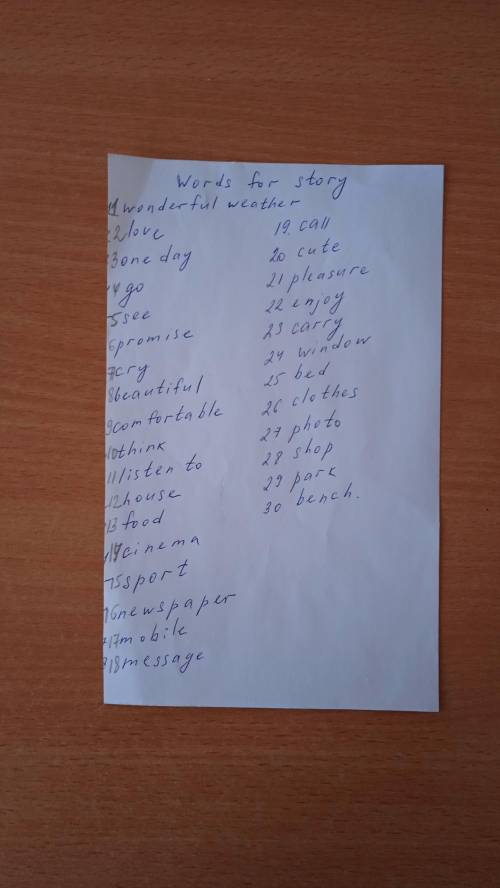 Words for story
1 wonderful weather
2 love
3 one day
4 go
5 see
6 promise
7 cry
8 beautiful
9 comfortable
10 think
11 listen to
12 house
13 food
14 cinema
15 sport
16 newspaper
17 mobile
18 message
19. call
20 cute
21 pleasure
22 enjoy
23 carry
24 window
25 bed
26 clothes
27 photo
28 shop
29 park
30 bench.